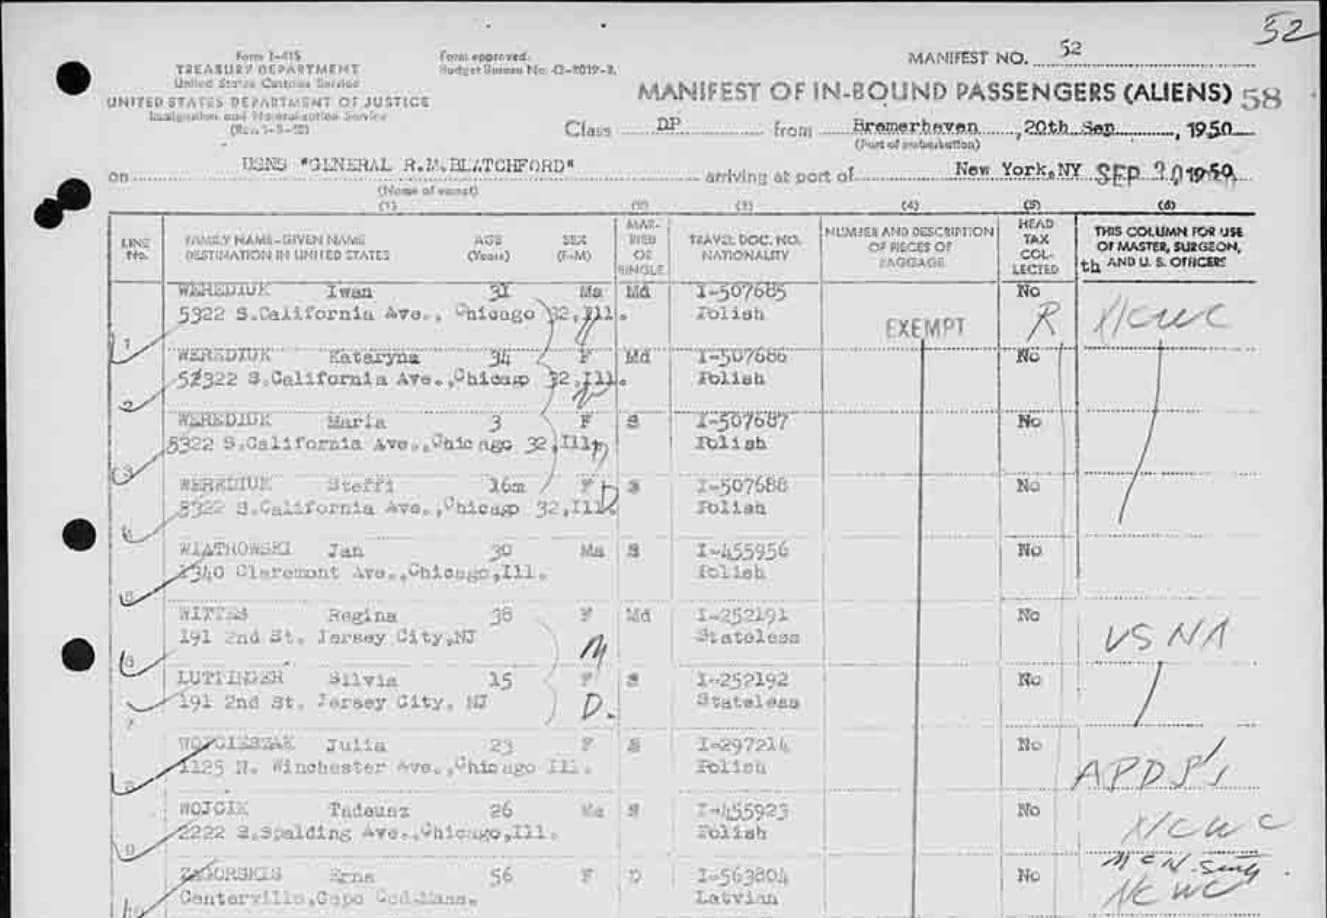 52
Form I-415
TREASURY DEPARTMENT
United States Customs Service
UNITED STATES DEPARTMENT OF JUSTICE
Immigration and Naturalization Service
Form approved.
Budget Bureau No.
MANIFEST NO. 52
MANIFEST OF IN-BOUND PASSENGERS (ALIENS) 58
Class DP from Bremerhaven, 20th Sep, 1950
(Port of embarkation)
on USNS "GENERAL R.M.BLATCHFORD" arriving at port of New York,NY SEP 30 1950
(Name of vessel)
(1) (2) (3) (4) (5) (6)
LINE No. FAMILY NAME-GIVEN NAME DESTINATION IN UNITED STATES AGE (Years) SEX (F-M) MARRIED OR SINGLE TRAVEL DOC. NO. NATIONALITY NUMBER AND DESCRIPTION OF PIECES OF BAGGAGE HEAD TAX COLLECTED THIS COLUMN FOR USE OF MASTER, SURGEON, AND U. S. OFFICERS
th
1 WEREDIUK Iwan 31 Ma Md I-507685 No
5322 S.California Ave., Chicago 32,Ill. Polish EXEMPT R NCWC
2 WEREDIUK Kataryna 34 F Md I-507686 No
52322 S.California Ave.,Chicago 32,Ill. Polish
3 WEREDIUK Maria 3 F S I-507687 No
5322 S.California Ave.,Chicago 32,Ill Polish
4 WEREDIUK Steffi 16m F S I-507688 No
5322 S.California Ave.,Chicago 32,Ill. Polish
5 WIATROWSKI Jan 30 Ma S I-455956 No
1340 Claremont Ave.,Chicago,Ill. Polish
6 WITTES Regina 38 F Md I-252191 No
191 2nd St. Jersey City,NJ Stateless USNA
7 LUTTINGER Silvia 15 F S I-252192 No
191 2nd St. Jersey City, NJ D. Stateless
8 WOJCIESZAK Julia 23 F S I-297214 No
1125 N. Winchester Ave.,Chicago Ill. Polish APDP's
9 WOJCIK Tadeusz 26 Ma S I-455923 No
2222 S.Spalding Ave.,Chicago,Ill. Polish NCWC
10 ZAGORSKIS Erna 56 F D I-563804 No
Centerville,Cape Cod.Mass. Latvian NCWC